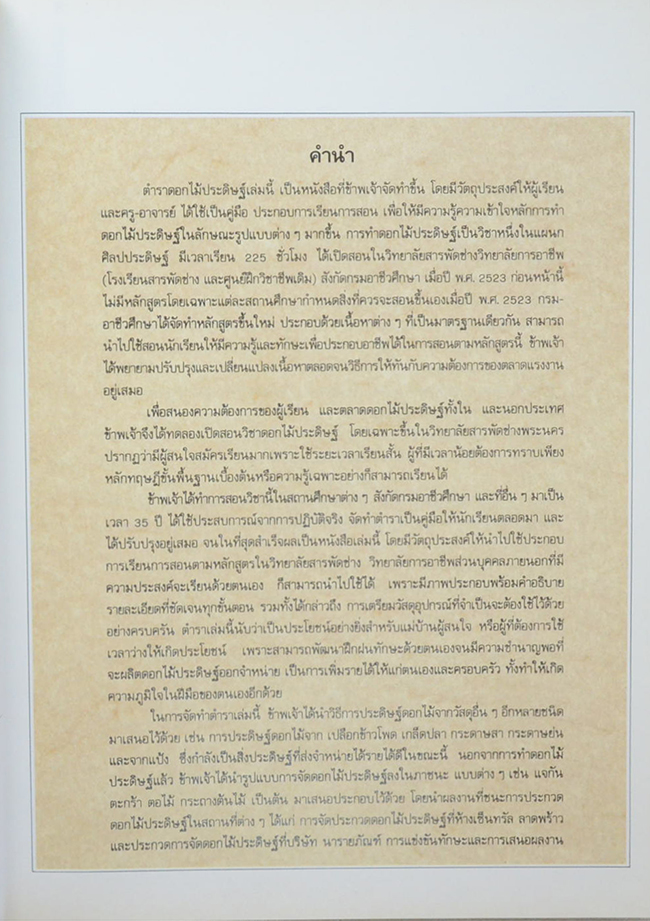 คำนำ
ตำราดอกไม้ประดิษฐ์เล่มนี้ เป็นหนังสือที่ข้าพเจ้าจัดทำขึ้น โดยมีวัตถุประสงค์ให้ผู้เรียน
และครู-อาจารย์ ได้ใช้เป็นคู่มือ ประกอบการเรียนการสอน เพื่อให้มีความรู้ความเข้าใจหลักการทำ
ดอกไม้ประดิษฐ์ในลักษณะรูปแบบต่าง ๆ มากขึ้น การทำดอกไม้ประดิษฐ์เป็นวิชาหนึ่งในแผนก
ศิลปประดิษฐ์ มีเวลาเรียน 225 ชั่วโมง ได้เปิดสอนในวิทยาลัยสารพัดช่างวิทยาลัยการอาชีพ
(โรงเรียนสารพัดช่าง และศูนย์ฝึกวิชาชีพเดิม) สังกัดกรมอาชีวศึกษา เมื่อปี พ.ศ. 2523 ก่อนหน้านี้
ไม่มีหลักสูตรโดยเฉพาะแต่ละสถานศึกษากำหนดสิ่งที่ควรจะสอนขึ้นเองเมื่อปี พ.ศ. 2523 กรม-
อาชีวศึกษาได้จัดทำหลักสูตรขึ้นใหม่ ประกอบด้วยเนื้อหาต่าง ๆ ที่เป็นมาตรฐานเดียวกัน สามารถ
นำไปใช้สอนนักเรียนให้มีความรู้และทักษะเพื่อประกอบอาชีพได้ในการสอนตามหลักสูตรนี้ ข้าพเจ้า
ได้พยายามปรับปรุงและเปลี่ยนแปลงเนื้อหาตลอดจนวิธีการให้ทันกับความต้องการของตลาดแรงงาน
อยู่เสมอ
เพื่อสนองความต้องการของผู้เรียน และตลาดดอกไม้ประดิษฐ์ทั้งใน และนอกประเทศ
ข้าพเจ้าจึงได้ทดลองเปิดสอนวิชาดอกไม้ประดิษฐ์ โดยเฉพาะขึ้นในวิทยาลัยสารพัดช่างพระนคร
ปรากฏว่ามีผู้สนใจสมัครเรียนมากเพราะใช้ระยะเวลาเรียนสั้น ผู้ที่มีเวลาน้อยต้องการทราบเพียง
หลักทฤษฎีขั้นพื้นฐานเบื้องต้นหรือความรู้เฉพาะอย่างก็สามารถเรียนได้
ข้าพเจ้าได้ทำการสอนวิชานี้ในสถานศึกษาต่าง ๆ สังกัดกรมอาชีวศึกษา และที่อื่น ๆ มาเป็น
เวลา 35 ปี ได้ใช้ประสบการณ์จากการปฏิบัติจริง จัดทำตำราเป็นคู่มือให้นักเรียนตลอดมา และ
ได้ปรับปรุงอยู่เสมอ จนในที่สุดสำเร็จผลเป็นหนังสือเล่มนี้ โดยมีวัตถุประสงค์ให้นำไปใช้ประกอบ
การเรียนการสอนตามหลักสูตรในวิทยาลัยสารพัดช่าง วิทยาลัยการอาชีพส่วนบุคคลภายนอกที่มี
ความประสงค์จะเรียนด้วยตนเอง ก็สามารถนำไปใช้ได้ เพราะมีภาพประกอบพร้อมคำอธิบาย
รายละเอียดที่ชัดเจนทุกขั้นตอน รวมทั้งได้กล่าวถึง การเตรียมวัสดุอุปกรณ์ที่จำเป็นจะต้องใช้ไว้ด้วย
อย่างครบครัน ตำราเล่มนี้นับว่าเป็นประโยชน์อย่างยิ่งสำหรับแม่บ้านผู้สนใจ หรือผู้ที่ต้องการใช้
เวลาว่างให้เกิดประโยชน์ เพราะสามารถพัฒนาฝึกฝนทักษะด้วยตนเองจนมีความชำนาญพอที่
จะผลิตดอกไม้ประดิษฐ์ออกจำหน่าย เป็นการเพิ่มรายได้ให้แก่ตนเองและครอบครัว ทั้งทำให้เกิด
ความภูมิใจในฝีมือของตนเองอีกด้วย
ในการจัดทำตำราเล่มนี้ ข้าพเจ้าได้นำวิธีการประดิษฐ์ดอกไม้จากวัสดุอื่น ๆ อีกหลายชนิด
มาเสนอไว้ด้วย เช่น การประดิษฐ์ดอกไม้จาก เปลือกข้าวโพด เกล็ดปลา กระดาษสา กระดาษย่น
และจากแป้ง ซึ่งกำลังเป็นสิ่งประดิษฐ์ที่ส่งจำหน่ายได้รายได้ดีในขณะนี้ นอกจากการทำดอกไม้
ประดิษฐ์แล้ว ข้าพเจ้าได้นำรูปแบบการจัดดอกไม้ประดิษฐ์ลงในภาชนะ แบบต่าง ๆ เช่น แจกัน
ตะกร้า ตอไม้ กระถางต้นไม้ เป็นต้น มาเสนอประกอบไว้ด้วย โดยนำผลงานที่ชนะการประกวด
ดอกไม้ประดิษฐ์ในสถานที่ต่าง ๆ ได้แก่ การจัดประกวดดอกไม้ประดิษฐ์ที่ห้างเซ็นทรัล ลาดพร้าว
และประกวดการจัดดอกไม้ประดิษฐ์ที่บริษัท นารายภัณฑ์ การแข่งขันทักษะและการเสนอผลงาน